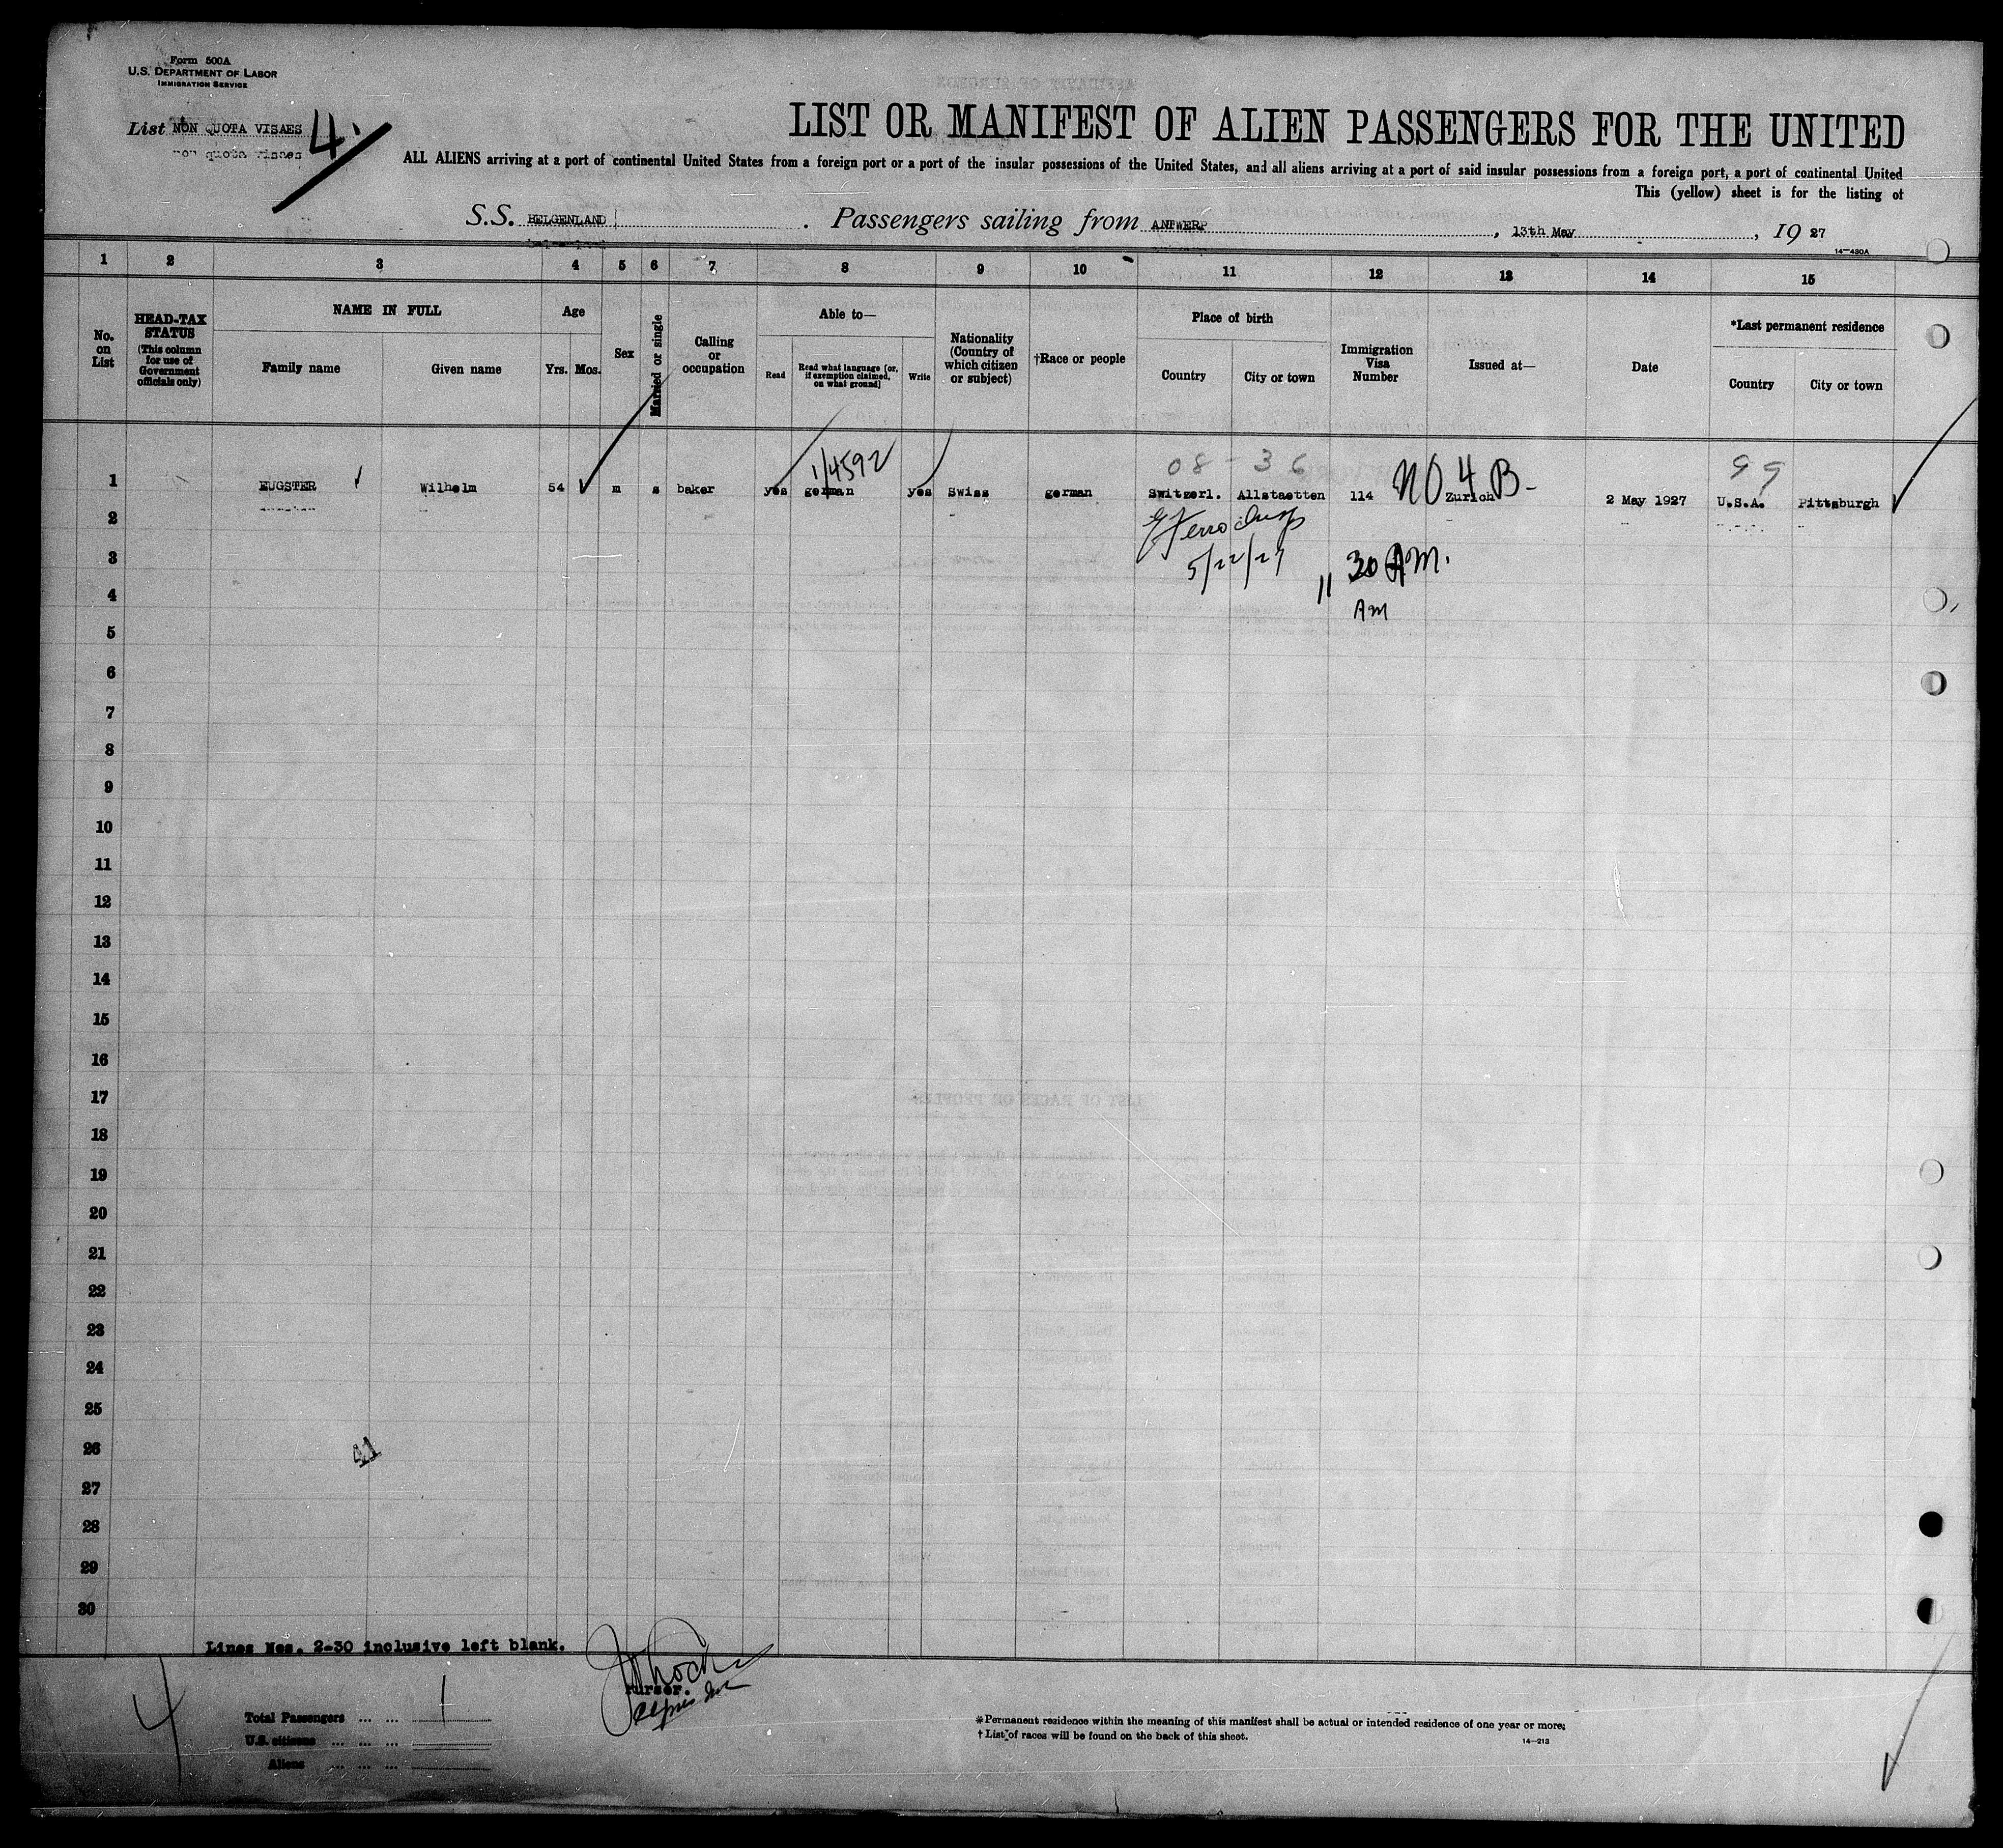 Form 500A
U.S. DEPARTMENT OF LABOR
IMMIGRATION SERVICE
List NON QUOTA VISAES 4
non quota visaes
LIST OR MANIFEST OF ALIEN PASSENGERS FOR THE UNITED
ALL ALIENS arriving at a port of continental United States from a foreign port or a port of the insular possessions of the United States, and all aliens arriving at a port of said insular possessions from a foreign port, a port of continental United
This (yellow) sheet is for the listing of
S.S. BELGENLAND . Passengers sailing from ANTWERP , 13th May , 19 27
14—430A
1 2 3 4 5 6 7 8 9 10 11 12 13 14 15
No. on List
HEAD-TAX STATUS (This column for use of Government officials only)
NAME IN FULL
Family name Given name
Age
Yrs. Mos.
Sex
Married or single
Calling or occupation
Able to—
Read Read what language (or, if exemption claimed, on what ground) Write
Nationality (Country of which citizen or subject)
†Race or people
Place of birth
Country City or town
Immigration Visa Number
Issued at—
Date
*Last permanent residence
Country City or town
1/4592 08 - 36 NO 4 B- 99
1 EUGSTER Wilhelm 54 m s baker yes german yes Swiss german Switzerl. Allstaetten 114 Zurich 2 May 1927 U.S.A. Pittsburgh
2
3 5/22/27 11 30 AM.
4 AM
5
6
7
8
9
10
11
12
13
14
15
16
17
18
19
20
21
22
23
24
25
26 41
27
28
29
30
Lines Nos. 2-30 inclusive left blank.
Purser.
4
Total Passengers ... ... 1
U.S. citizens ... ... ...
Aliens ... ... ...
*Permanent residence within the meaning of this manifest shall be actual or intended residence of one year or more.
† List of races will be found on the back of this sheet.
14—213